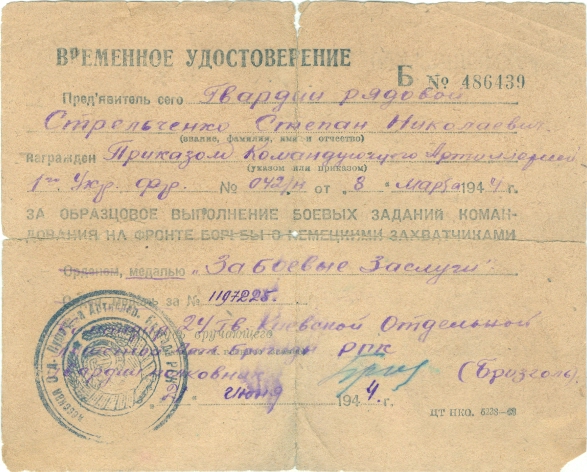 ВРЕМЕННОЕ УДОСТОВЕРЕНИЕ
Б № 486439
Пред'явитель сего Гвардии рядовой
Стрельченко Степан Николаевич
(звание, фамилия, имя и отчество)
награжден Приказом Командующего Артиллерией
(указом или приказом)
1го Укр. фр. № 042/н от 8 марта 1944 г.
ЗА ОБРАЗЦОВОЕ ВЫПОЛНЕНИЕ БОЕВЫХ ЗАДАНИЙ КОМАН-
ДОВАНИЯ НА ФРОНТЕ БОРЬБЫ С НЕМЕЦКИМИ ЗАХВАТЧИКАМИ
Орденом, медалью „За боевые Заслуги"
за № 1197225.
24 Гв. Киевской Отдельной
Арт. Бригады РГК
полковник (Бризгол)
июня 1944 г.
ЦТ НКО.